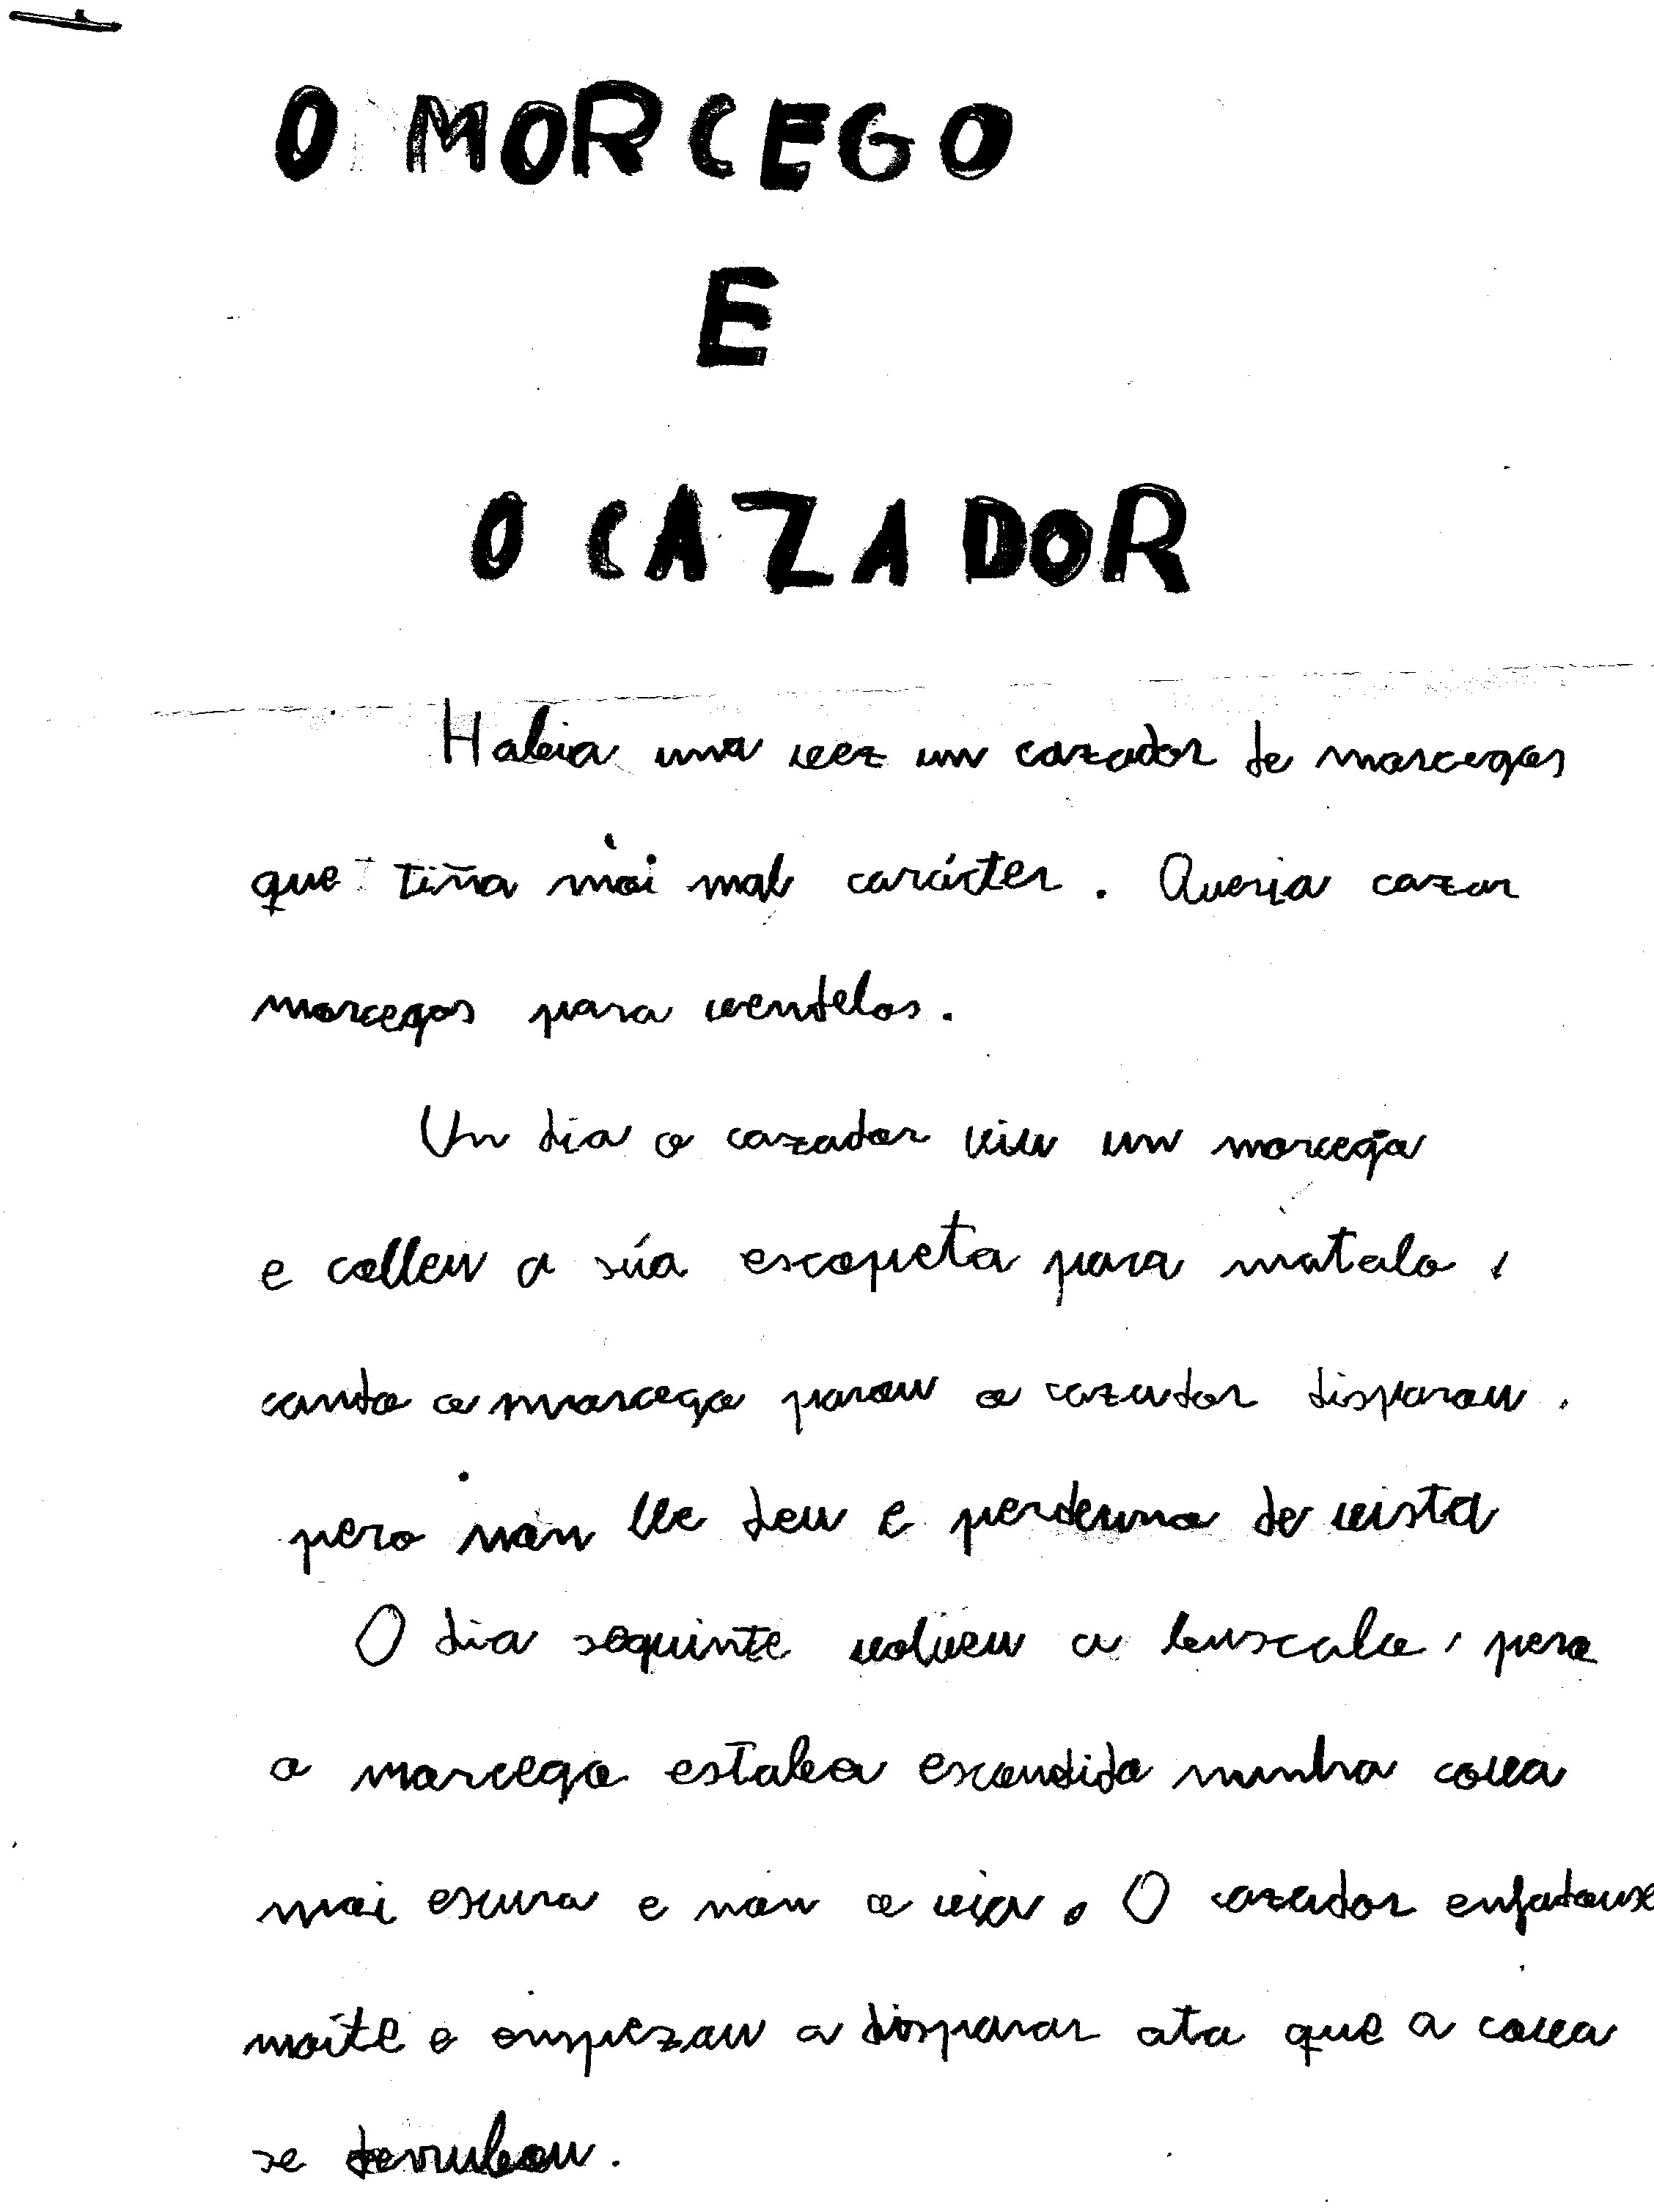 O MORCEGO
E
O CAZADOR
Habia unha vez un cazador de morcegos
que tiña moi mal carácter. Queria cazar
morcegos para vendelos.
Un dia o cazador viu un morcego
e colleu a súa escopeta para matalo,
cando o morcego parou o cazador disparou.
pero non lle deu e perdeuno de vista
O dia seguinte volveu a buscalo, pero
o morcego estaba escondido nunha cova
moi escura e non o via. O cazador enfadouse
moite e empezou a disparar ata que a cova
se derrubou.